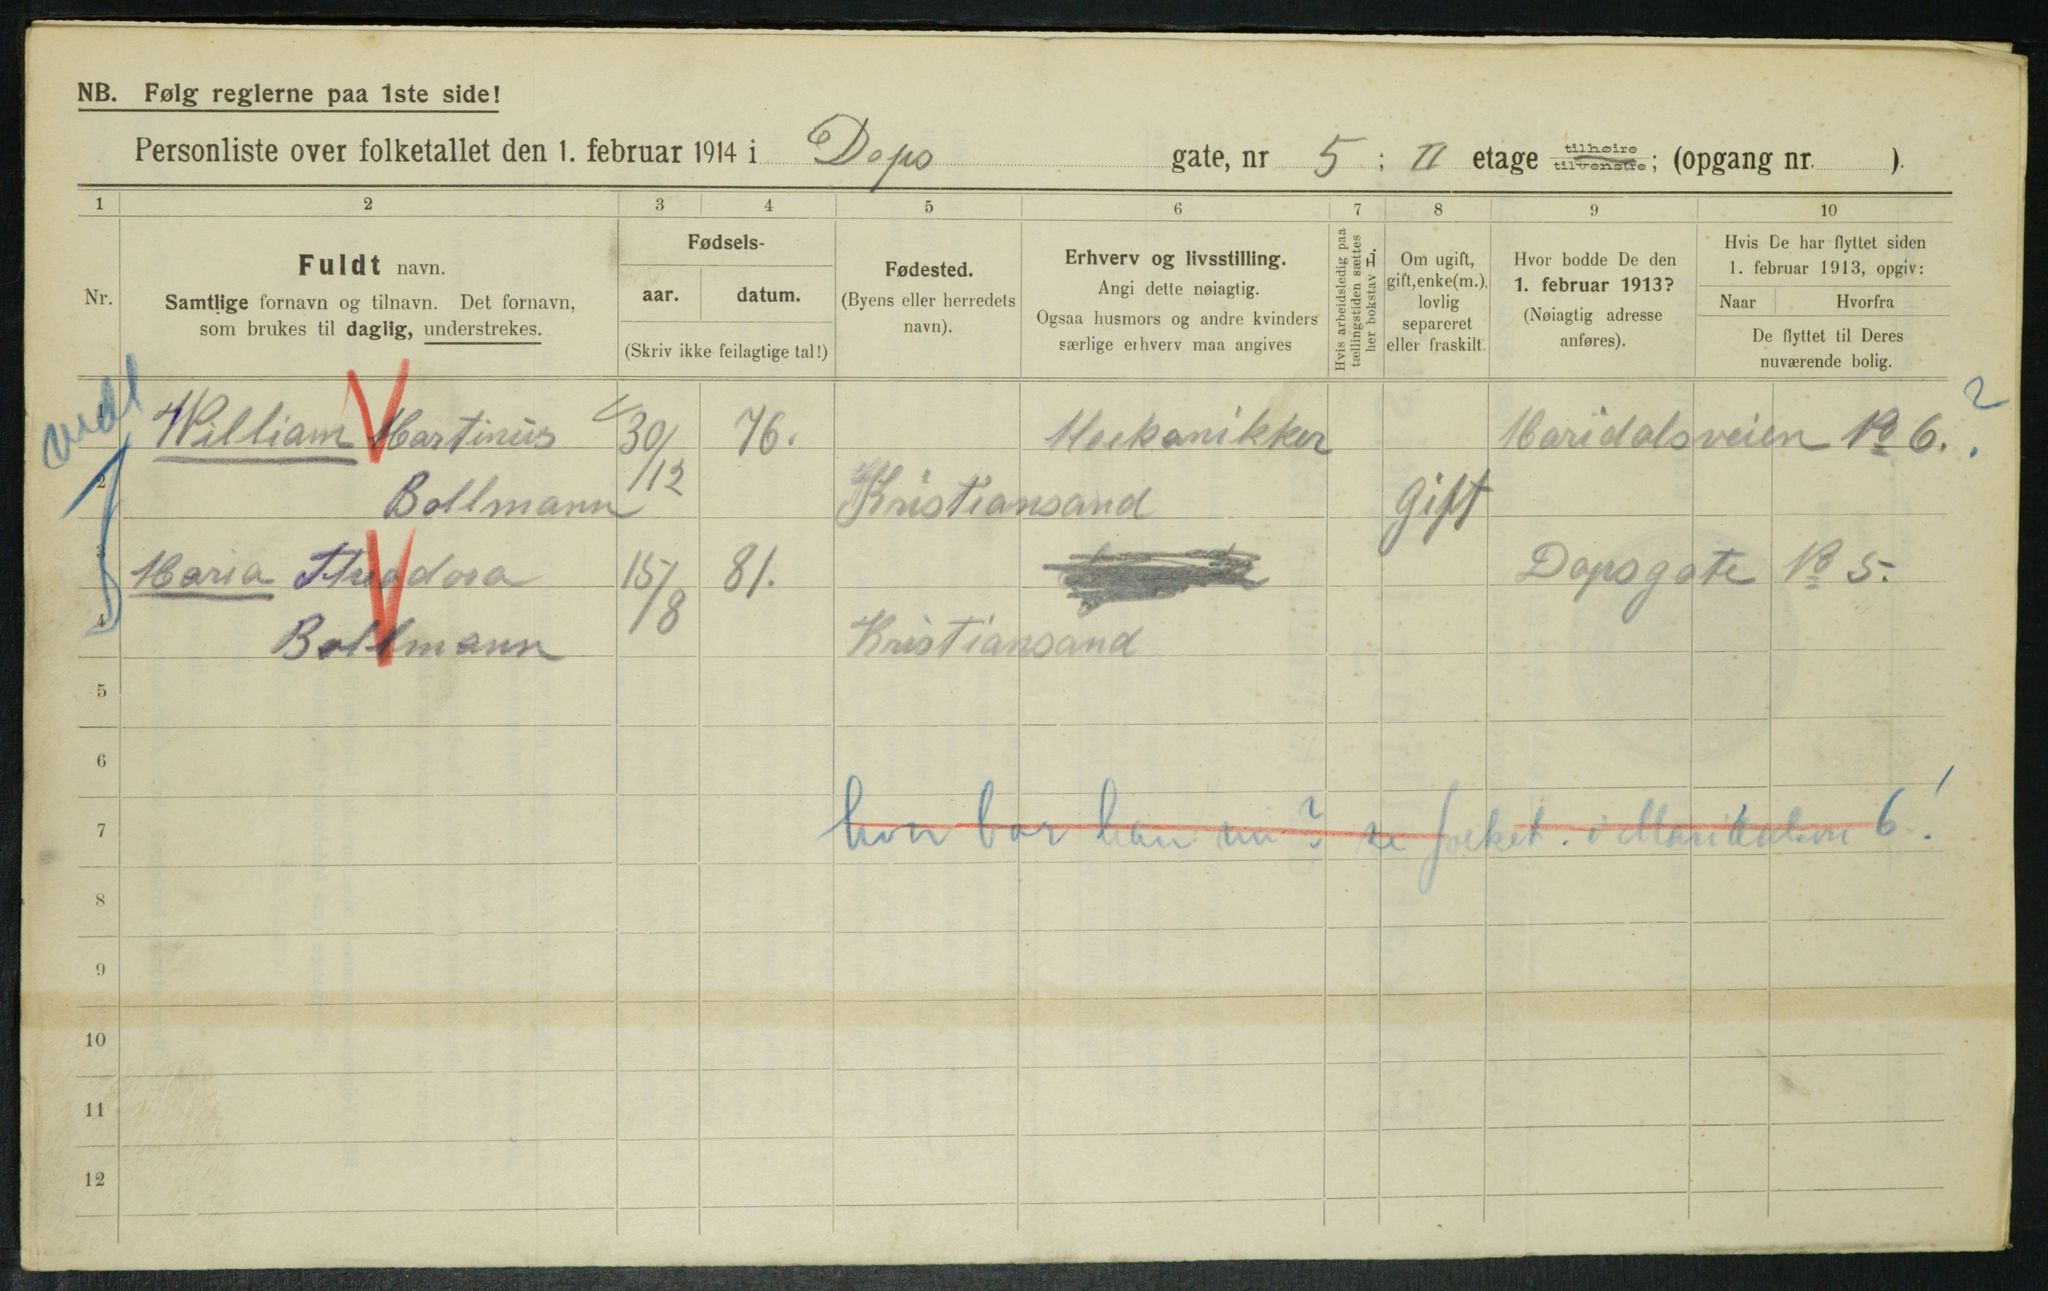 NB. Følg reglerne paa 1ste side!
Personliste over folketallet den 1. februar 1914 i Dops gate, nr 5; II etage tilhøire tilvenstre; (opgang nr. ).
1 2 3 4 5 6 7 8 9 10
Nr.
Fuldt navn.
Samtlige fornavn og tilnavn. Det fornavn,
som brukes til daglig, understrekes.
Fødsels-
aar. datum.
(Skriv ikke feilagtige tal!)
Fødested.
(Byens eller herredets
navn).
Erhverv og livsstilling.
Angi dette nøiagtig.
Ogsaa husmors og andre kvinders
særlige erhverv maa angives
Hvis arbeidsledig paa
tællingstiden sættes
her bokstav L.
Om ugift,
gift, enke(m.),
lovlig
separeret
eller fraskilt.
Hvor bodde De den
1. februar 1913?
(Nøiagtig adresse
anføres).
Hvis De har flyttet siden
1. februar 1913, opgiv:
Naar Hvorfra
De flyttet til Deres
nuværende bolig.
1 William Martinus 30/12 76. Meekanikker Maridalsveien No 6. ?
2 Bollmann Kristiansand gift
3 Maria Theodora 15/8 81. Dopsgate No 5.
4 Bollmann Kristiansand
5
6
7 hvor bor han nu? se folket i Maridalsvn 6!
8
9
10
11
12